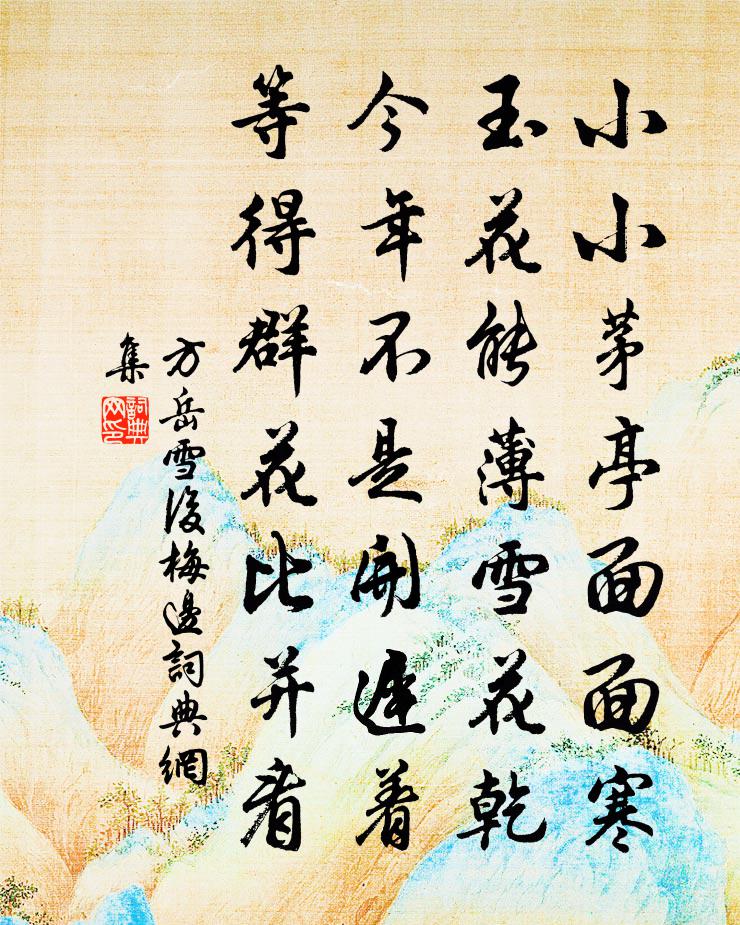 小小茅亭面面寒
玉花能薄雪花乾
今年不是開遲着
等得群花比并看
方岳雪後梅邊詞典網
集
詞典
网印